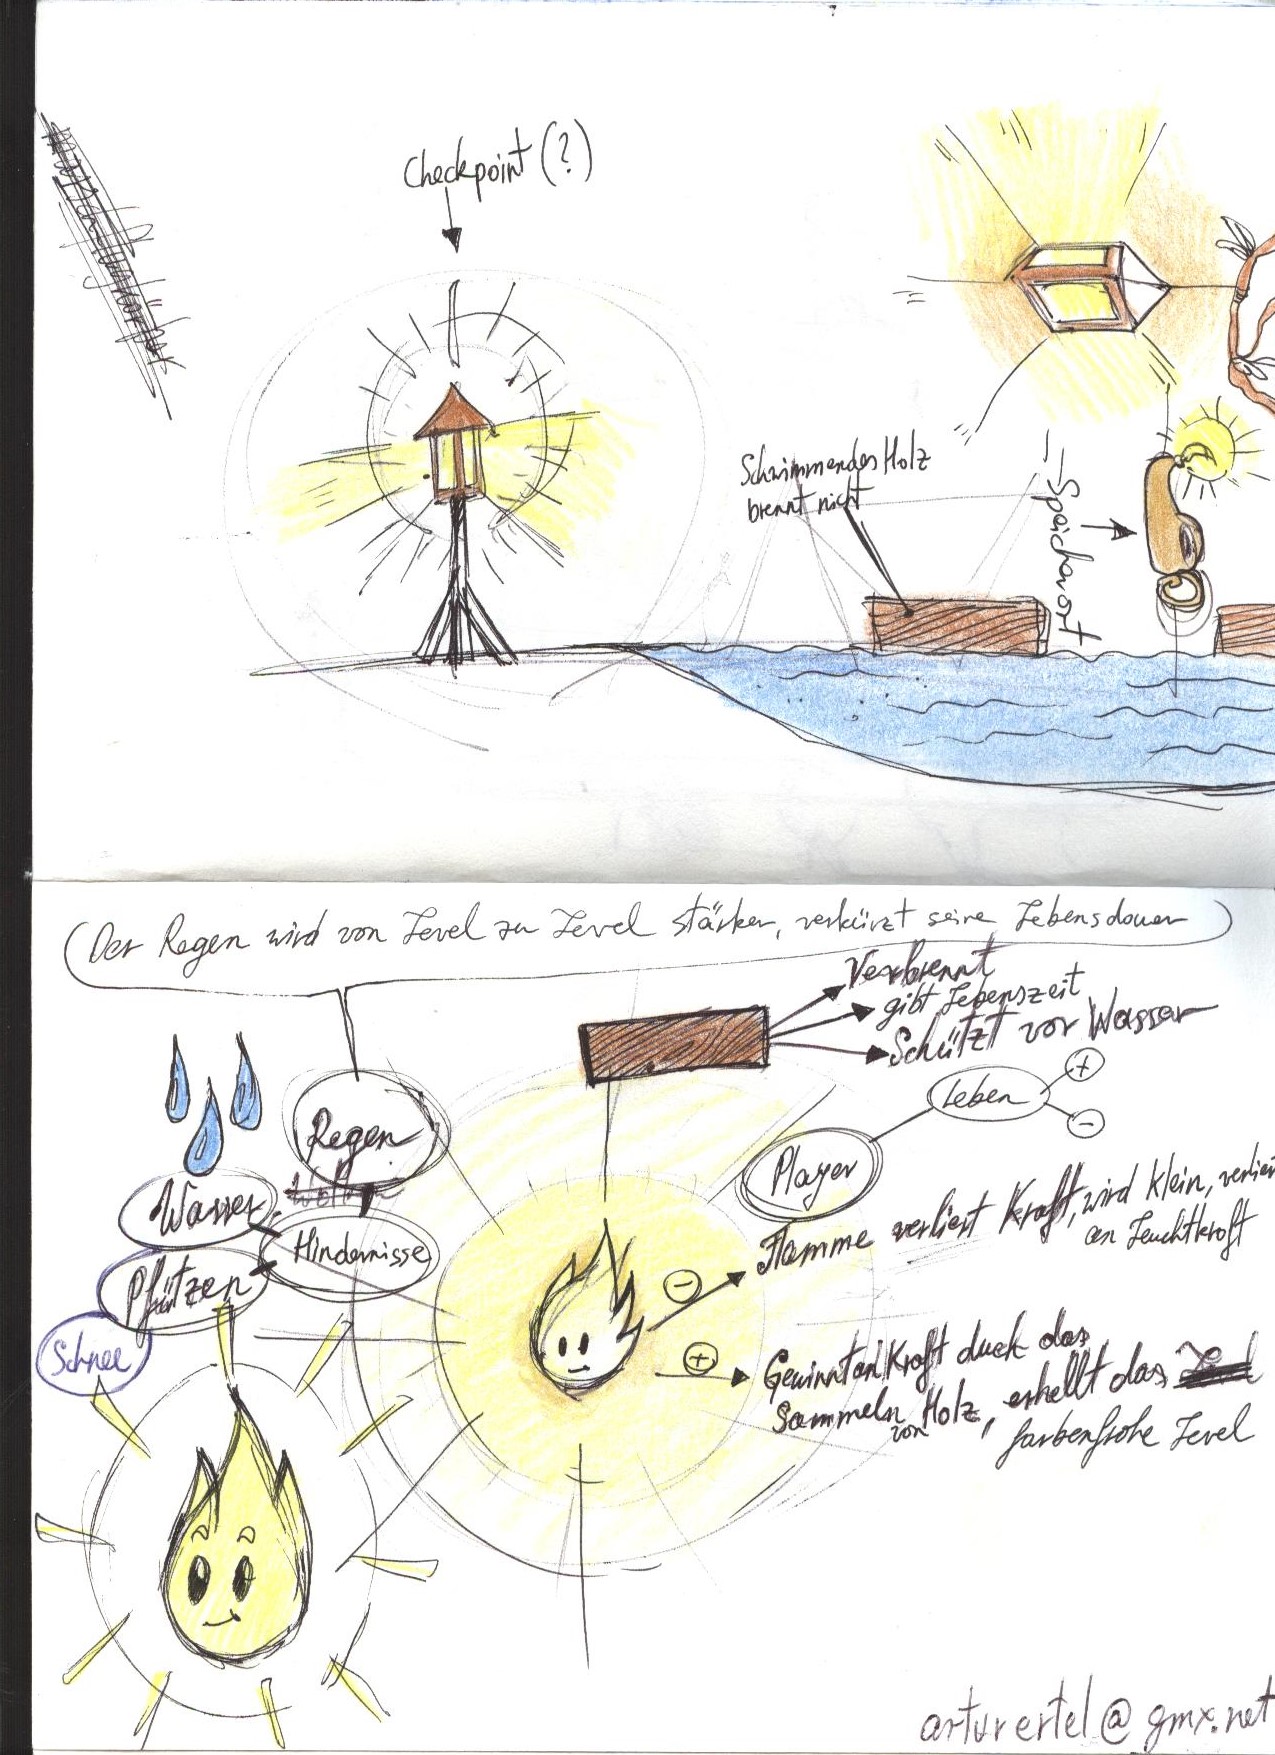 Checkpoint (?)
Schwimmendes Holz
brennt nicht
Speicherort
Der Regen wird von Level zu Level stärker, verkürzt seine Lebensdauer
Verbrennt
gibt Lebenszeit
Schützt vor Wasser
Leben
+
-
Regen
Player
Wasser
Hindernisse
Pfützen
Schnee
- Flamme verliert Kraft, wird klein, verliert
an Leuchtkraft
+ Gewinnt an Kraft duch das
Sammeln von Holz, erhellt das
farbenfrohe Level
arturertel@gmx.net